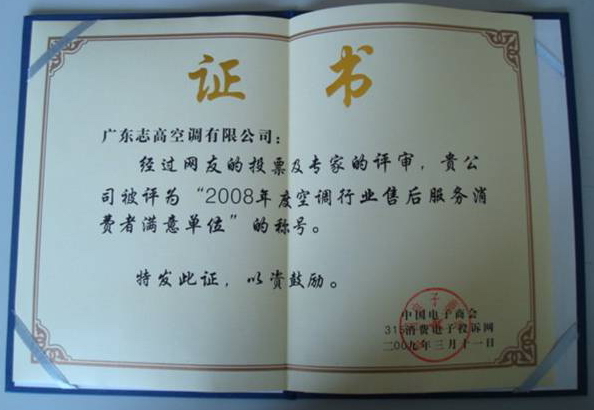 证书
广东志高空调有限公司：
经过网友的投票及专家的评审，贵公
司被评为“2008年度空调行业售后服务消
费者满意单位”的称号。
特发此证，以资鼓励。
中国电子商会
315消费电子投诉网
二00九年三月十一日